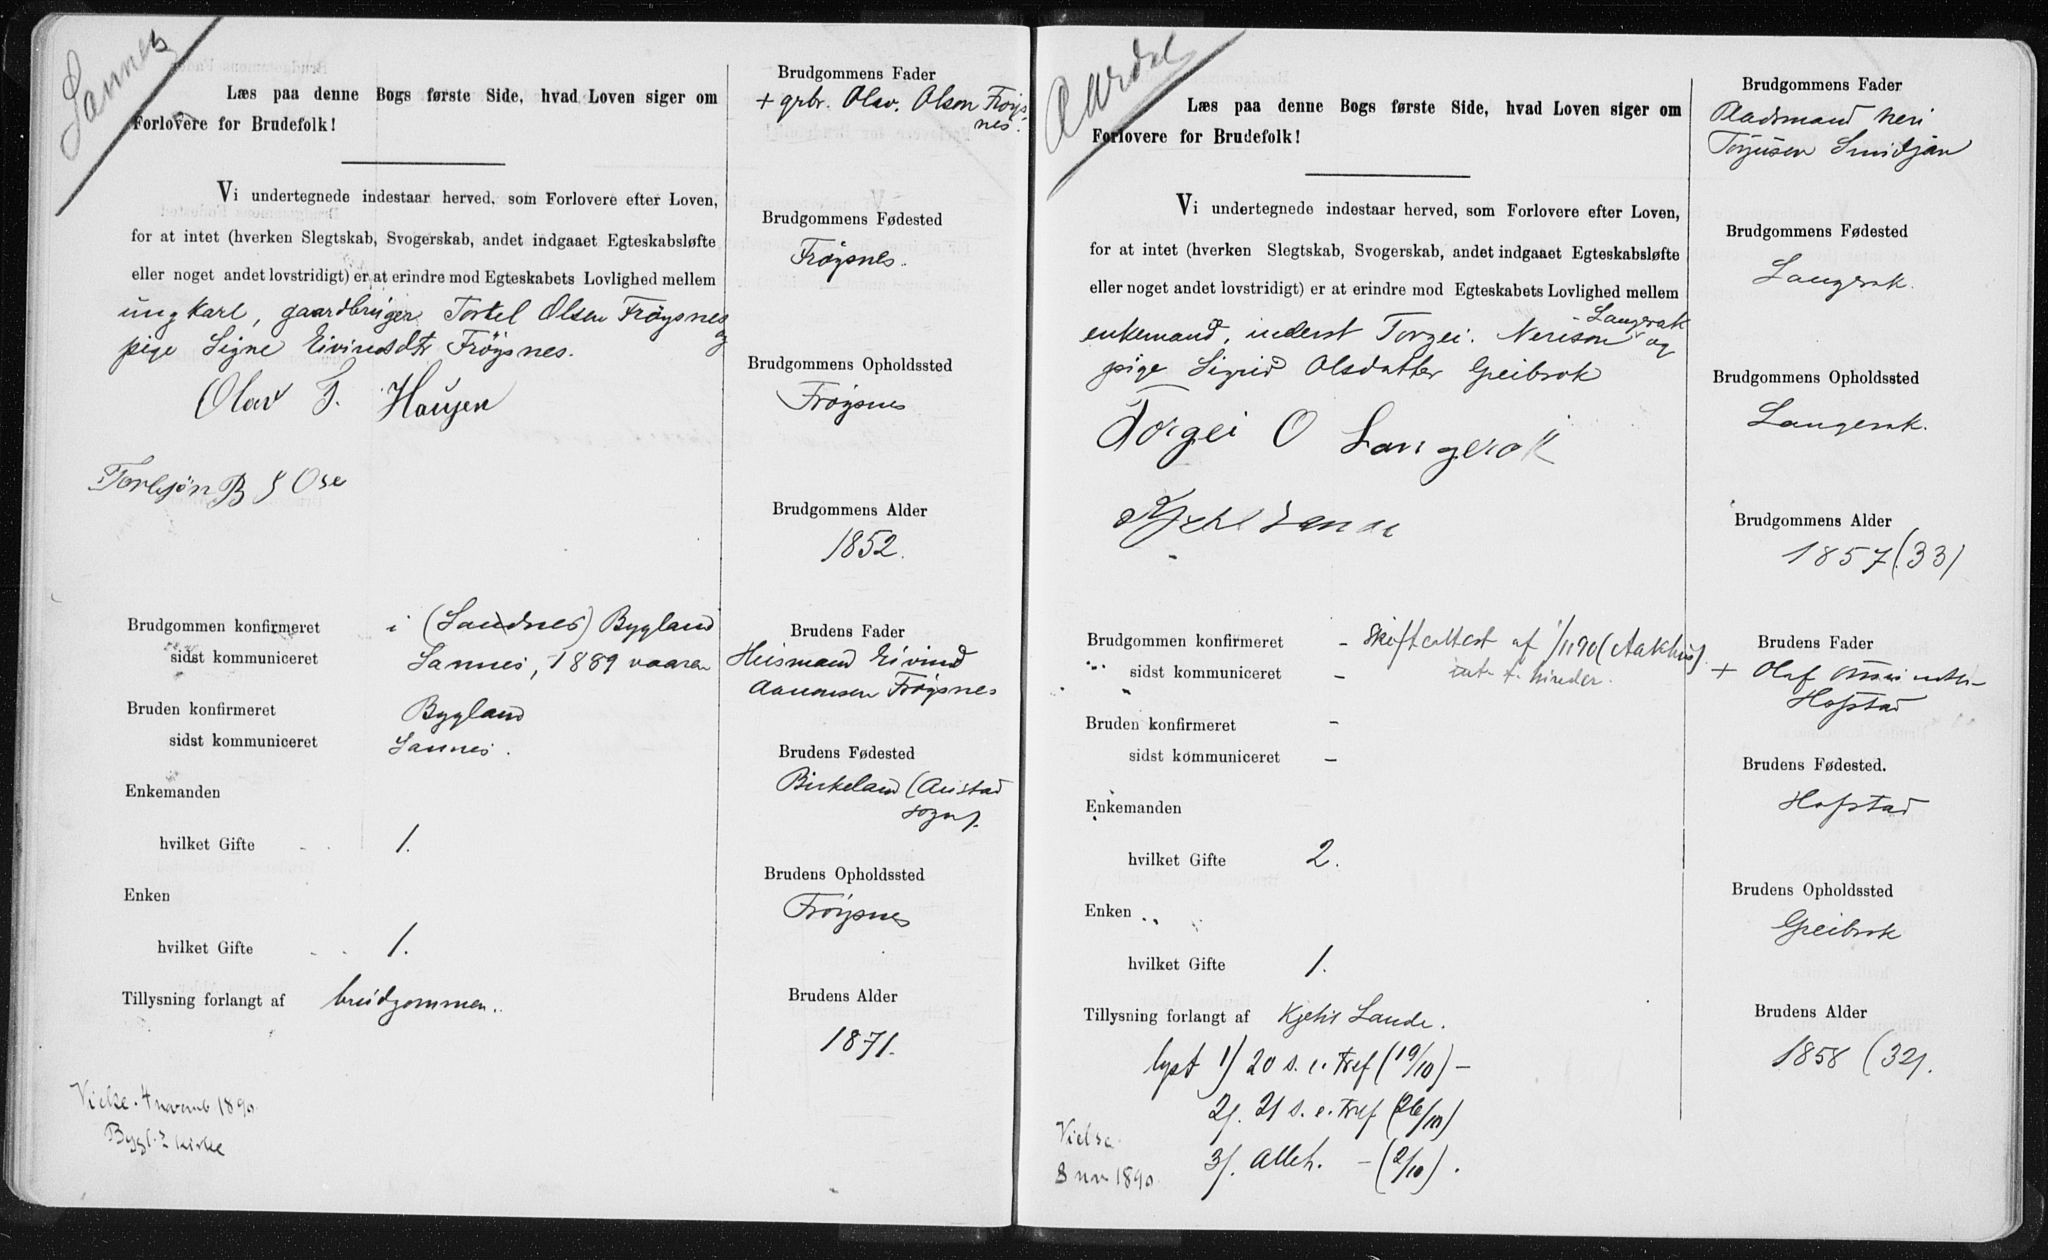 Sannes
Læs paa denne Bogs første Side, hvad Loven siger om
Forlovere for Brudefolk!
Vi undertegnede indestaar herved, som Forlovere efter Loven,
for at intet (hverken Slegtskab, Svogerskab, andet indgaaet Egteskabsløfte
eller noget andet lovstridigt) er at erindre mod Egteskabets Lovlighed mellem
ungkarl, gaardbruger Torkel Olsen Frøysnes og
pige Signe Eivindsdtr Frøysnes.
Olav T. Haugen
Torbjøn B S Ose
Brudgommen konfirmeret i (Sandnes) Bygland
sidst kommuniceret Sannes, 1889 vaaren
Bruden konfirmeret Bygland
sidst kommuniceret Sannes.
Enkemanden
hvilket Gifte 1.
Enken
hvilket Gifte 1.
Tillysning forlangt af brudgommen.
Vielse 4 novemb 1890
Bygl. kirke
Brudgommens Fader
+ grbr. Olav Olson Frøys-
nes.
Brudgommens Fødested
Frøysnes.
Brudgommens Opholdssted
Frøysnes
Brudgommens Alder
1852.
Brudens Fader
Huismand Eivind
Aanonsen Frøysnes
Brudens Fødested
Birkeland (Austad
sogn).
Brudens Opholdssted
Frøysnes
Brudens Alder
1871.
Aardal
Læs paa denne Bogs første Side, hvad Loven siger om
Forlovere for Brudefolk!
Vi undertegnede indestaar herved, som Forlovere efter Loven,
for at intet (hverken Slegtskab, Svogerskab, andet indgaaet Egteskabsløfte
eller noget andet lovstridigt) er at erindre mod Egteskabets Lovlighed mellem
enkemand, inderst Torgei. Nerison Langerak og
pige Sigrid Olsdatter Greibrok
Torgei O Langerak
Kjetil Lande
Brudgommen konfirmeret - Skifteattest af 1/11 90 (Aakhus)
sidst kommuniceret - intet t. hinder.
Bruden konfirmeret -
sidst kommuniceret -
Enkemanden
hvilket Gifte 2.
Enken
hvilket Gifte 1.
Tillysning forlangt af Kjetil Lande.
lyst 1) 20 s. e. Tref (19/10) -
2). 21 s. e. Tref (26/10)
3). Alleh. - (2/10).
Vielse
8 nov 1890
Brudgommens Fader
Pladsmand Neri
Torjusen Smidjan
Brudgommens Fødested
Langerak.
Brudgommens Opholdssted
Langerak.
Brudgommens Alder
1857 (33)
Brudens Fader
+ Olaf
Hofstad
Brudens Fødested.
Hofstad
Brudens Opholdssted
Greibrok
Brudens Alder
1858 (32).